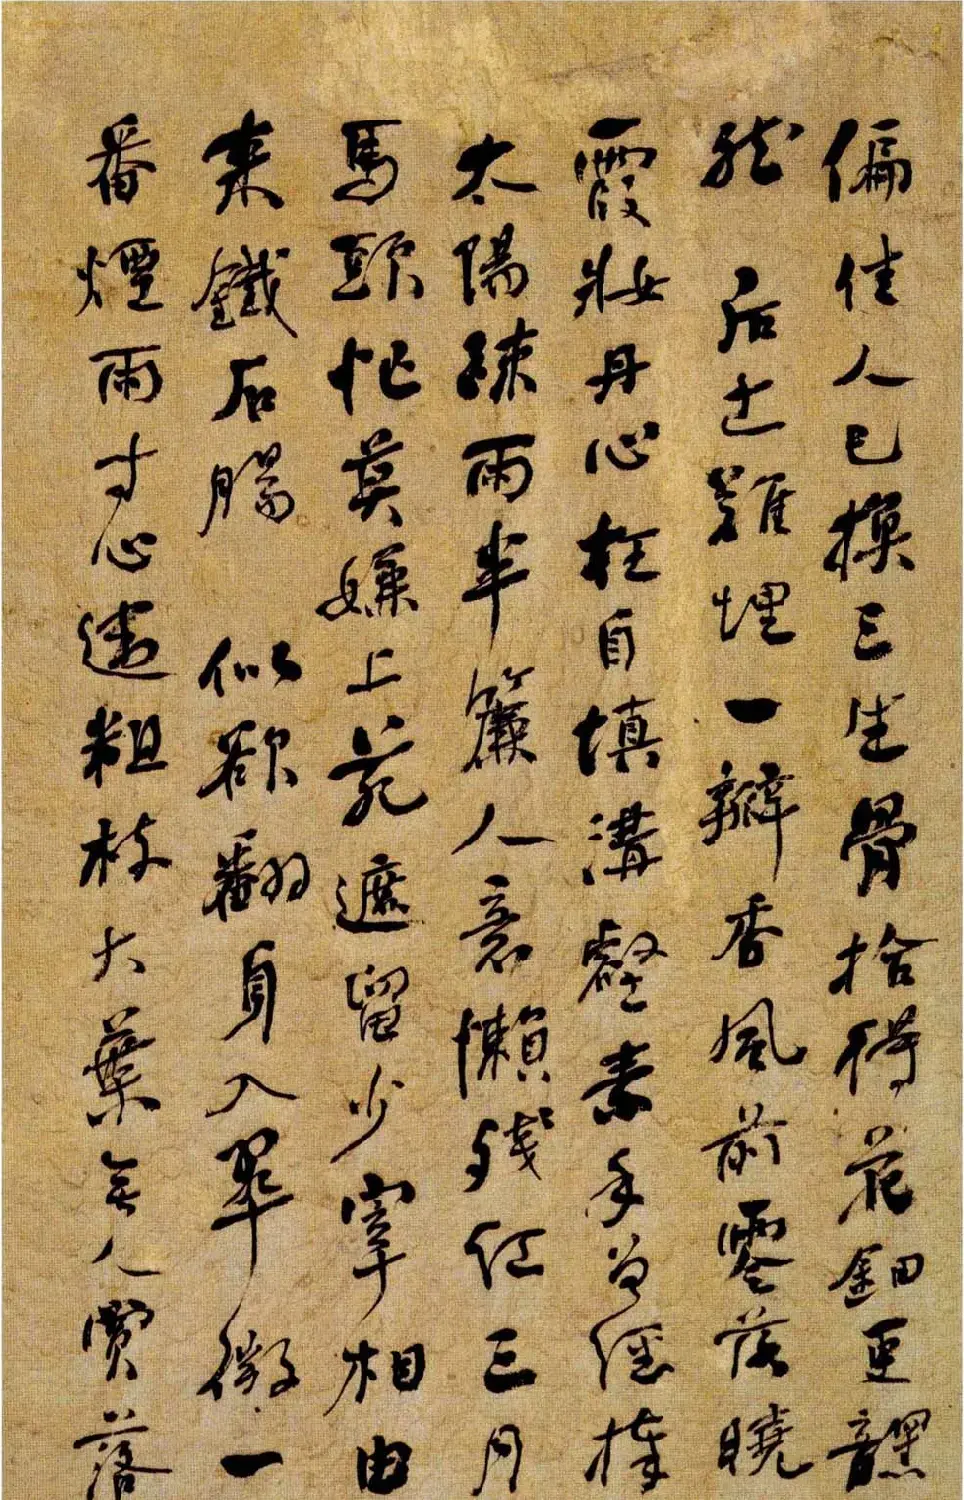 偏佳人已換三生骨拾得花鈿更黯
然 后土難埋一瓣香風前零落曉
霞妝丹心枉自填溝壑素手曾經捧
太陽疎雨半簾人意懶殘紅三月
馬頭忙莫嫌上苑遮留少宰相由
来鐵石腸 似欲翻身入翠微一
番煙雨寸心違粗枝大葉無人賞落